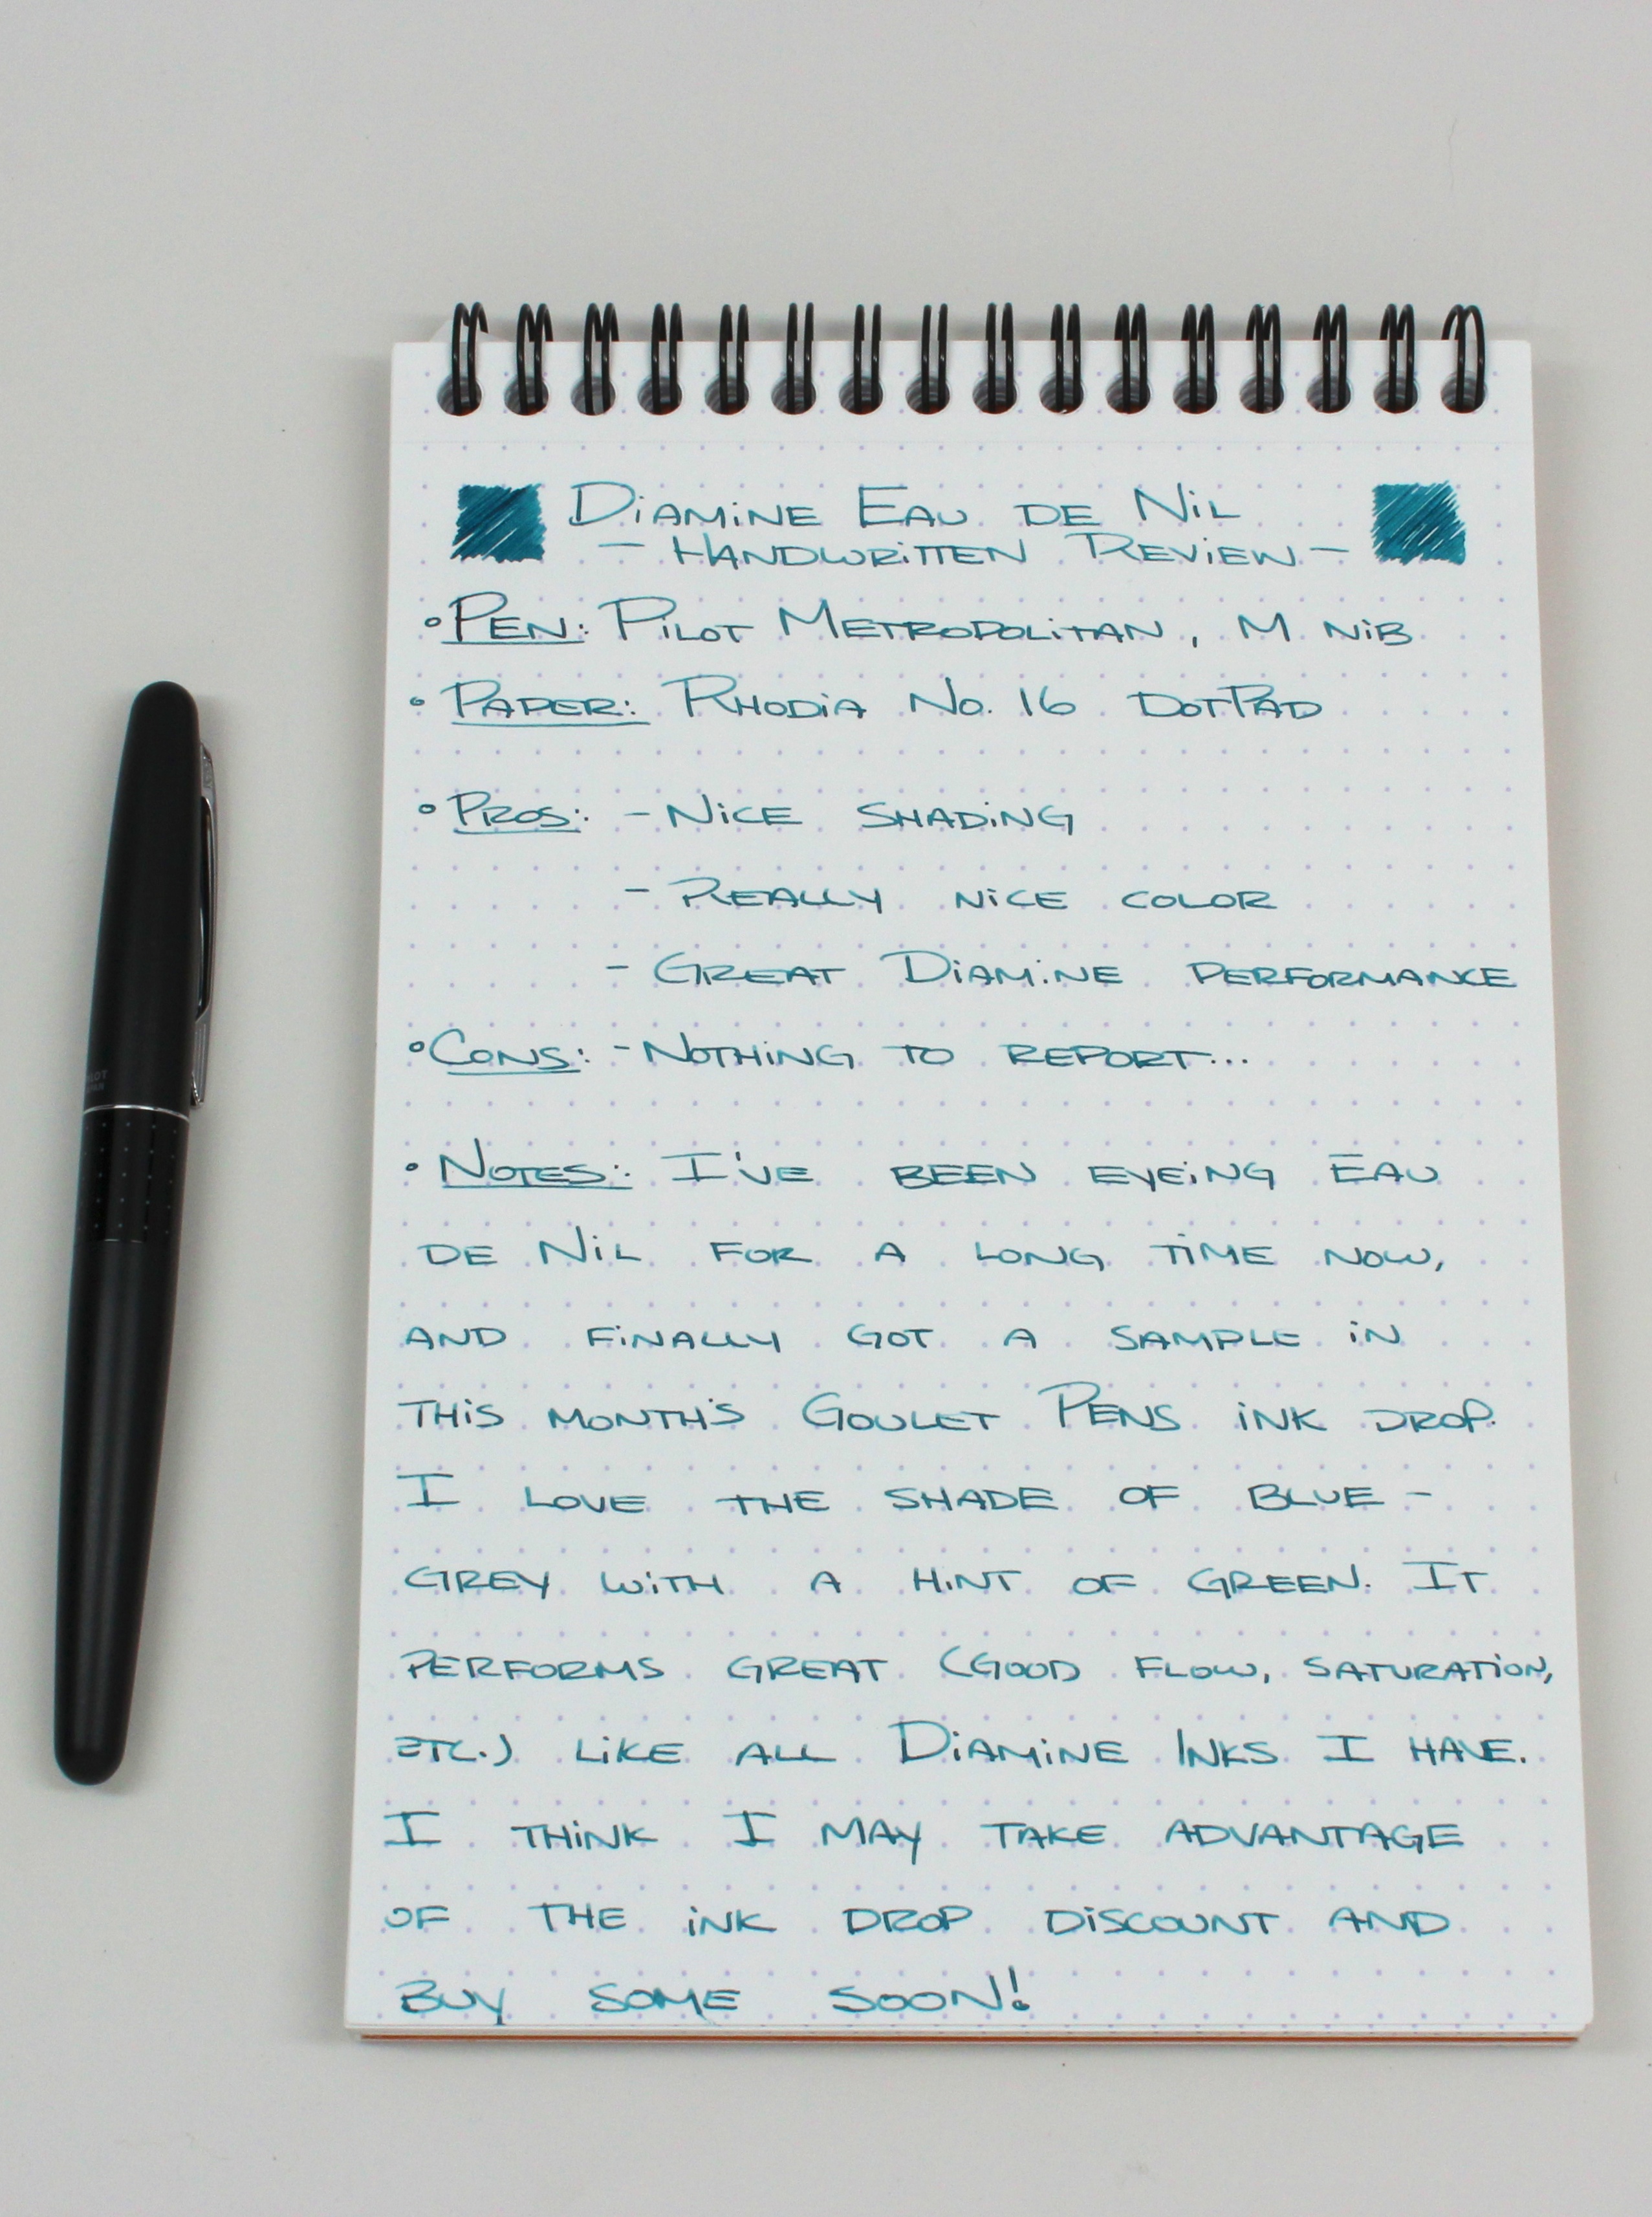 Diamine Eau de Nil
- Handwritten Review -
• Pen: Pilot Metropolitan, M nib
• Paper: Rhodia No. 16 DotPad
• Pros: - Nice shading
- Really nice color
- Great Diamine performance
• Cons: - Nothing to report...
• Notes: I've been eyeing Eau
de Nil for a long time now,
and finally got a sample in
this month's Goulet Pens ink drop.
I love the shade of blue-
grey with a hint of green. It
performs great (good flow, saturation,
etc.) like all Diamine Inks I have.
I think I may take advantage
of the ink drop discount and
buy some soon!